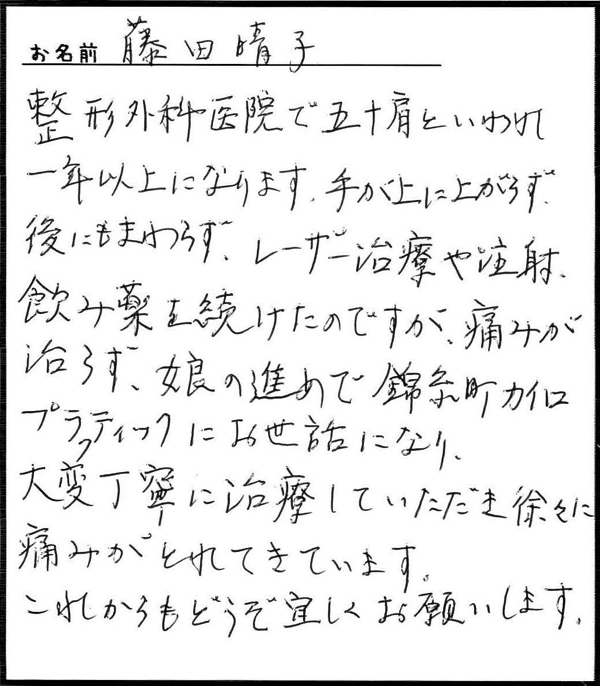 お名前 藤田晴子
整形外科医院で五十肩といわれ
一年以上になります、手が上に上がらず、
後にもまわらず、レーザー治療や注射、
飲み薬を続けたのですが、痛みが
治らず、娘の進めで錦糸町カイロ
プラクティックにお世話になり、
大変丁寧に治療していただき徐々に
痛みがとれてきています。
これからもどうぞ宜しくお願いします。